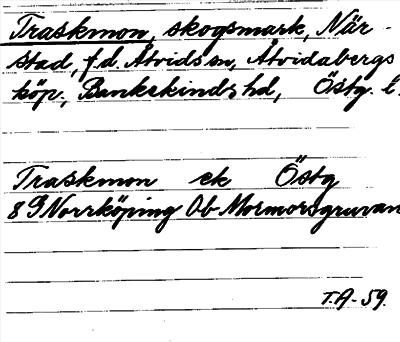 Traskmon, skogsmark, När-
stad, f.d. Åtvids sn, Åtvidabergs
köp., Bankekinds hd, Östg. l.
Traskmon ek Östg
8 G Norrköping Ob Mormorsgruvan
T.A-59.